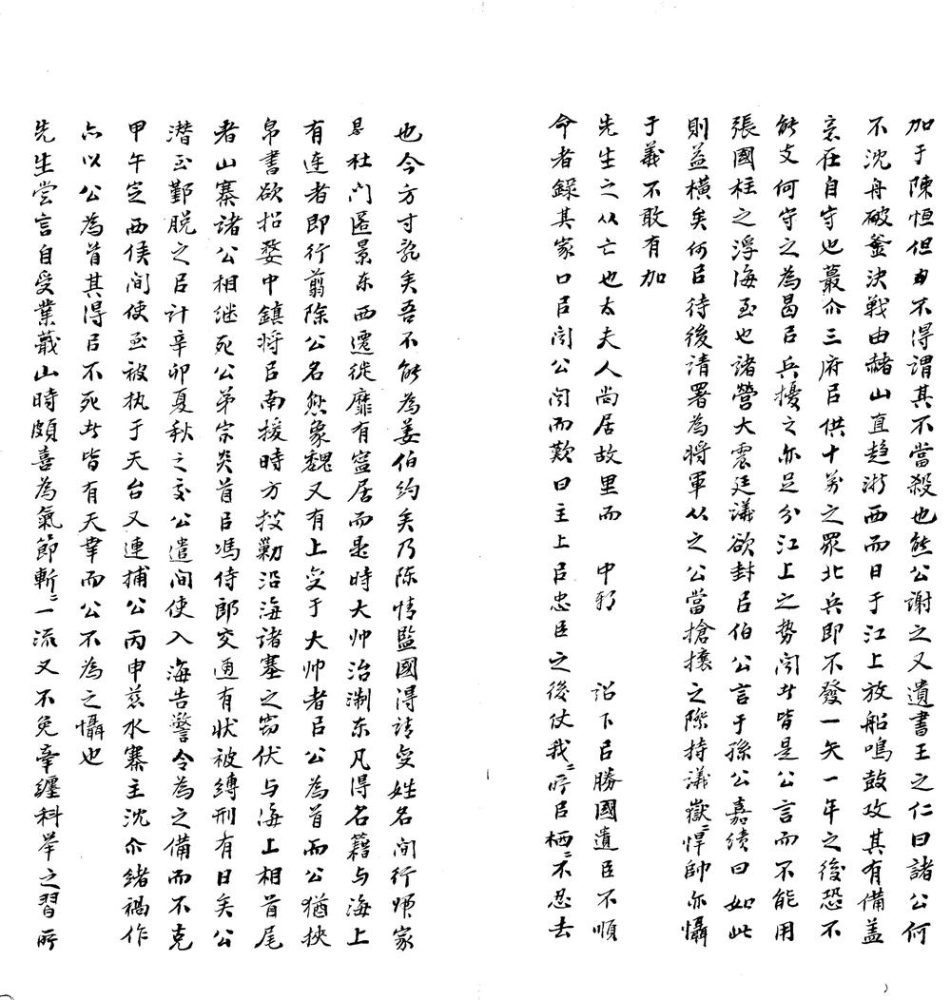 加于陳恒但不得謂其不當殺也熊公謝之又遺書王之仁曰諸公何
不沈舟破釜決戰由赭山直趋浙西而日于江上放船鳴鼓攻其有備盖
意在自守也蕞尒三府㠯供十萬之眾北兵即不發一矢一年之後恐不
能支何守之為曷㠯兵擾之亦足分江上之勢闻者皆是公言而不能用
張國柱之浮海至也諸營大震廷議欲封㠯伯公言于孫公嘉績曰如此
則益橫矣何㠯待後請署為將軍从之公當搶攘之際持議嶽〻悍帥亦懾
于義不敢有加
先生之从亡也太夫人尚居故里而 中朝 詔下㠯勝國遺臣不順
命者錄其家口㠯闻公闻而歎曰主上㠯忠臣之後仗我〻所㠯栖〻不忍去
也今方寸亂矣吾不能為姜伯約矣乃陈情監國得請变姓名间行归家
自是杜门匿景东西遷徙靡有寍居而是時大帅治浙东凡得名籍与海上
有连者即行翦除公名懸象魏又有上变于大帅者㠯公為首而公猶挾
帛書欲招婺中鎮将㠯南援時方搜勦沿海諸寨之窃伏与海上相首尾
者山寨諸公相继死公弟宗炎首㠯馮侍郎交通有狀被縛刑有日矣公
潛至鄞脱之㠯计辛卯夏秋之交公遣间使入海告警令為之備而不克
甲午定西侯间使至被执于天台又連捕公丙申慈水寨主沈尒緒禍作
亦以公為首其得㠯不死者皆有天幸而公不為之懾也
先生尝言自受業蕺山時頗喜為氣節斬〻一流又不免牽纏科举之習所